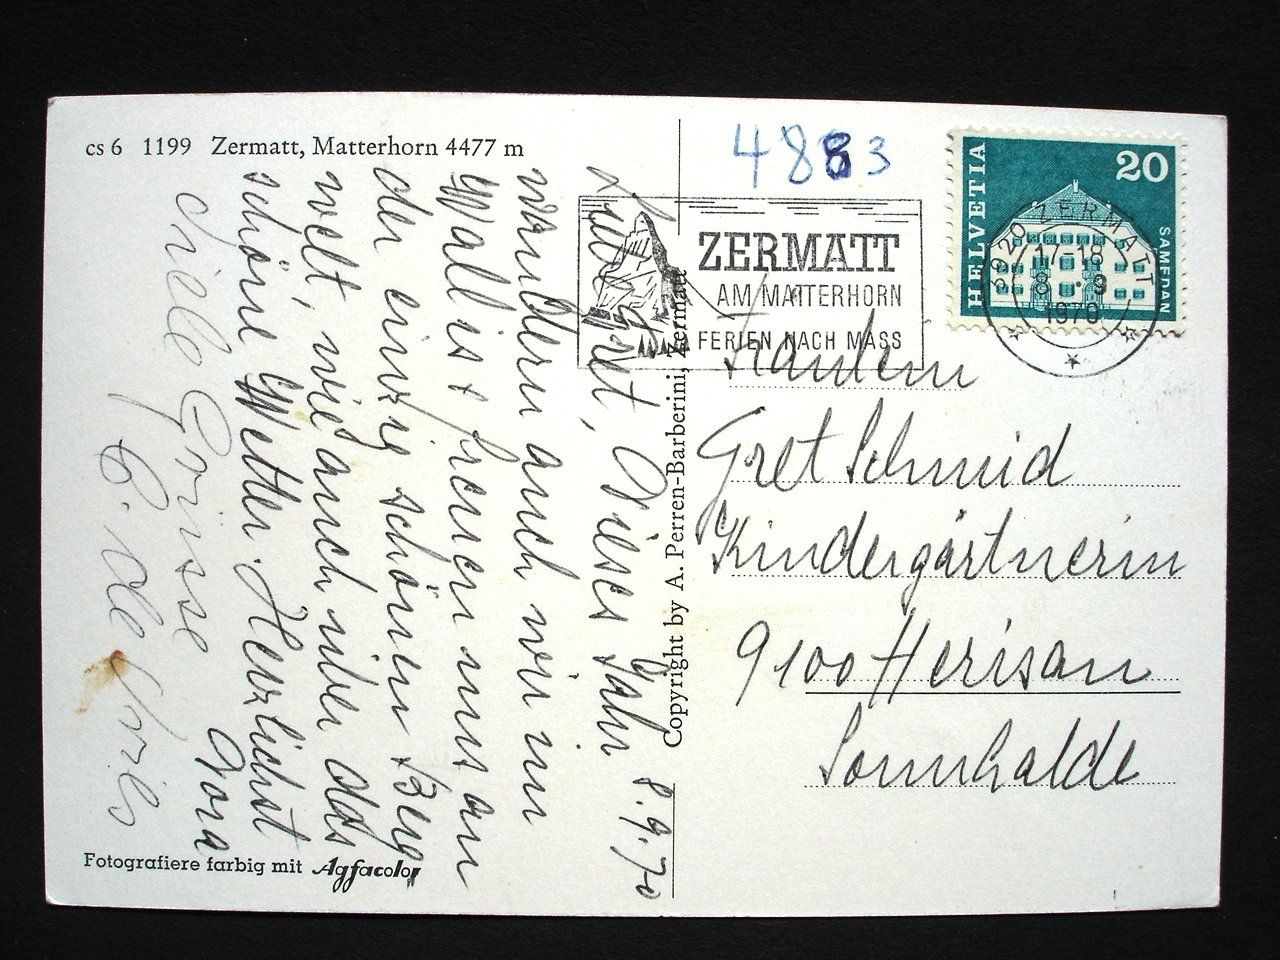 cs 6 1199 Zermatt, Matterhorn 4477 m
8.9.70
Liebe Gret, Dieses Jahr
wandern auch wir im
Wallis & freuen uns an
der einzig schönen Berg
welt, wie auch über das
schöne Wetter. Herzlichst
Nora
Viele Grüsse
de Vries
Fotografiere farbig mit Agfacolor
Copyright by A. Perren-Barberini, Zermatt
4883
ZERMATT
AM MATTERHORN
FERIEN NACH MASS
HELVETIA
20
SAMEDAN
3920 ZERMATT
17-18
8.-9
1970
Fräulein
Gret Schmid
Kindergärtnerin
9100 Herisau
Sonnhalde